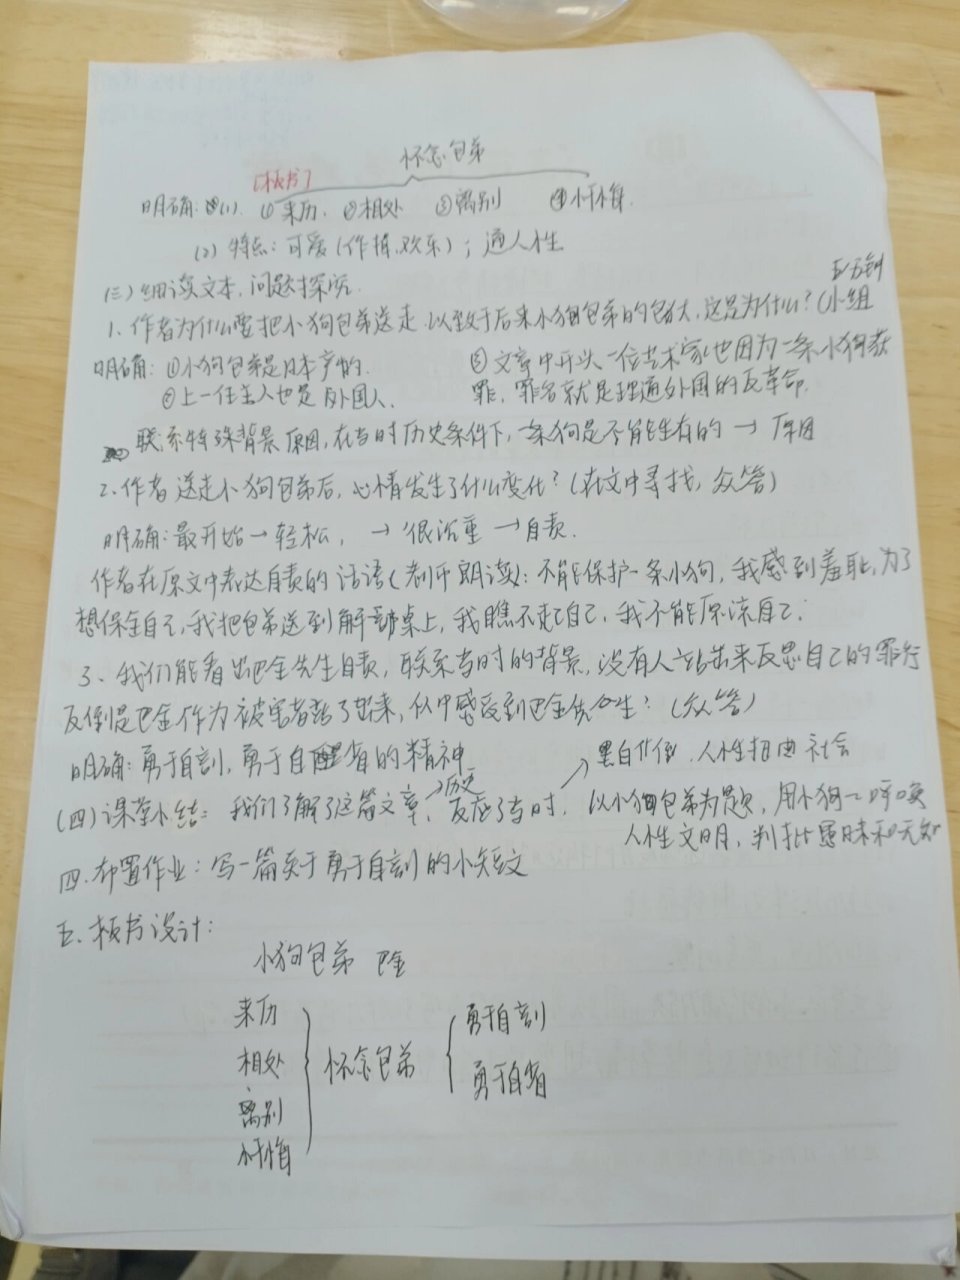 怀念包弟
[板书]
明确:(1). ①来历. ②相处 ③离别 ④忏悔.
(2) 特点:可爱(作揖,欢乐);通人性
(三)细读文本,问题探究.
1.作者为什么要把小狗包弟送走.以致于后来小狗包弟的包袱,这是为什么?(小组
五分钟
明确:①小狗包弟是日本产的. ③文章中开头一位艺术家也因为一条小狗获
②上一任主人也是外国人. 罪,罪名就是理通外国的反革命.
联系特殊背景原因,在当时历史条件下,一条狗是不能生存的→原因
2.作者送走小狗包弟后,心情发生了什么变化?(在文中寻找,众答)
明确:最开始→轻松, →很沉重→自责.
作者在原文中表达自责的话语(老师朗读):不能保护一条小狗,我感到羞耻,为了
想保全自己,我把包弟送到解剖桌上,我瞧不起自己,我不能原谅自己.
3、我们能看出巴金先生自责,联系当时的背景,没有人站出来反思自己的罪行
反倒是巴金作为被害者站了出来,从中感受到巴金先生?(众答)
明确:勇于自剖,勇于自醒省的精神 黑白作倒.人性扭曲社会
(四)课堂小结:我们了解了这篇文章,→历史反应了当时, 以小狗包弟为题,用小狗 呼唤
人性文明,判批愚昧和无知
四.布置作业:写一篇关于勇于自剖的小短文
五.板书设计:
小狗包弟 巴金
来历
相处 怀念包弟 勇于自剖
离别 勇于自省
忏悔